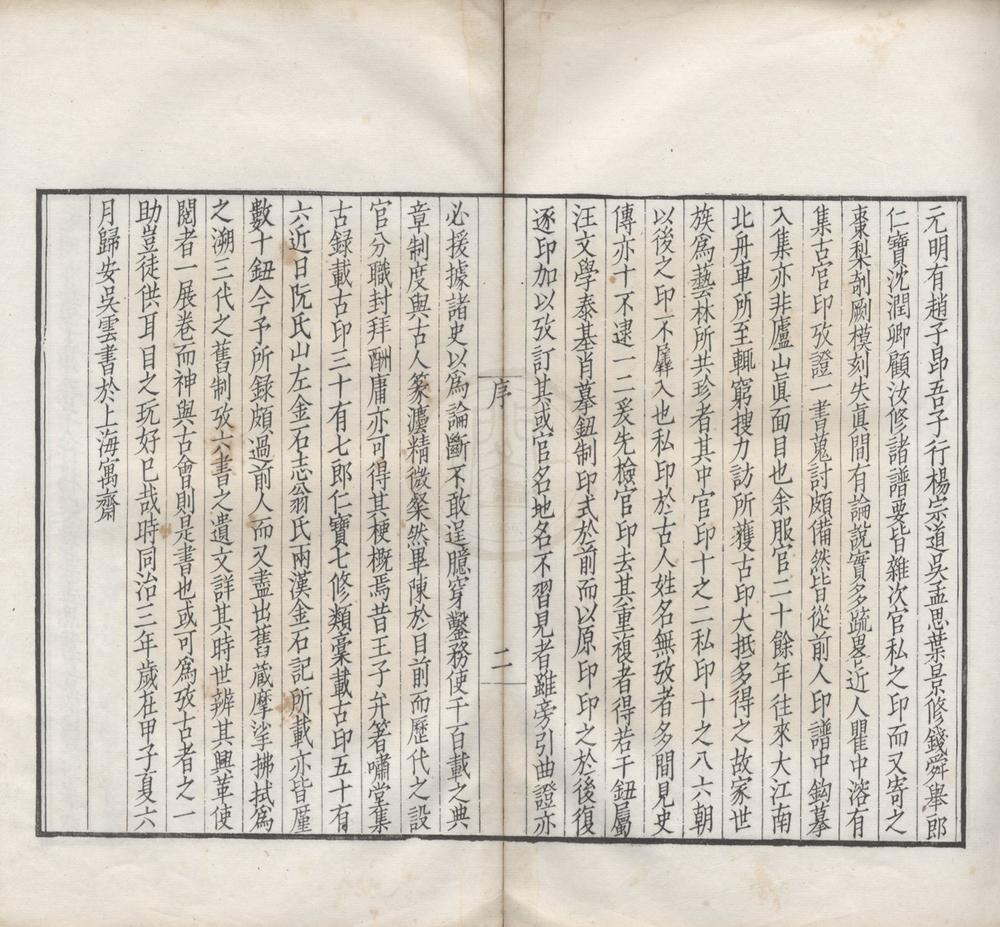 元明有趙子昂吾子行楊宗道吳孟思葉景修錢舜舉郎
仁寶沈潤卿顧汝修諸譜要皆雜次官私之印而又寄之
棗梨剞劂模刻失眞間有論說實多疏畧近人瞿中溶有
集古官印攷證一書蒐討頗備然皆從前人印譜中鈎摹
入集亦非廬山眞面目也余服官二十餘年往來大江南
北舟車所至輒窮搜力訪所獲古印大抵多得之故家世
族爲藝林所共珍者其中官印十之二私印十之八六朝
以後之印不羼入也私印於古人姓名無攷者多間見史
傳亦十不逮一二爰先檢官印去其重複者得若干鈕屬
汪文學泰基肖摹鈕制印式於前而以原印印之於後復
逐印加以攷訂其或官名地名不習見者雖旁引曲證亦
序
二
必援據諸史以爲論斷不敢逞臆穿鑿務使千百載之典
章制度與古人篆灋精微粲然畢陳於目前而歷代之設
官分職封拜酬庸亦可得其梗槪焉昔王子弁箸嘯堂集
古録載古印三十有七郎仁寶七修類稾載古印五十有
六近日阮氏山左金石志翁氏兩漢金石記所載亦皆厪
數十鈕今予所録頗過前人而又盡出舊藏摩挲拂拭爲
之溯三代之舊制攷六書之遺文詳其時世辨其興革使
閱者一展卷而神與古會則是書也或可爲攷古者之一
助豈徒供耳目之玩好已哉時同治三年歲在甲子夏六
月歸安吳雲書於上海寓齋